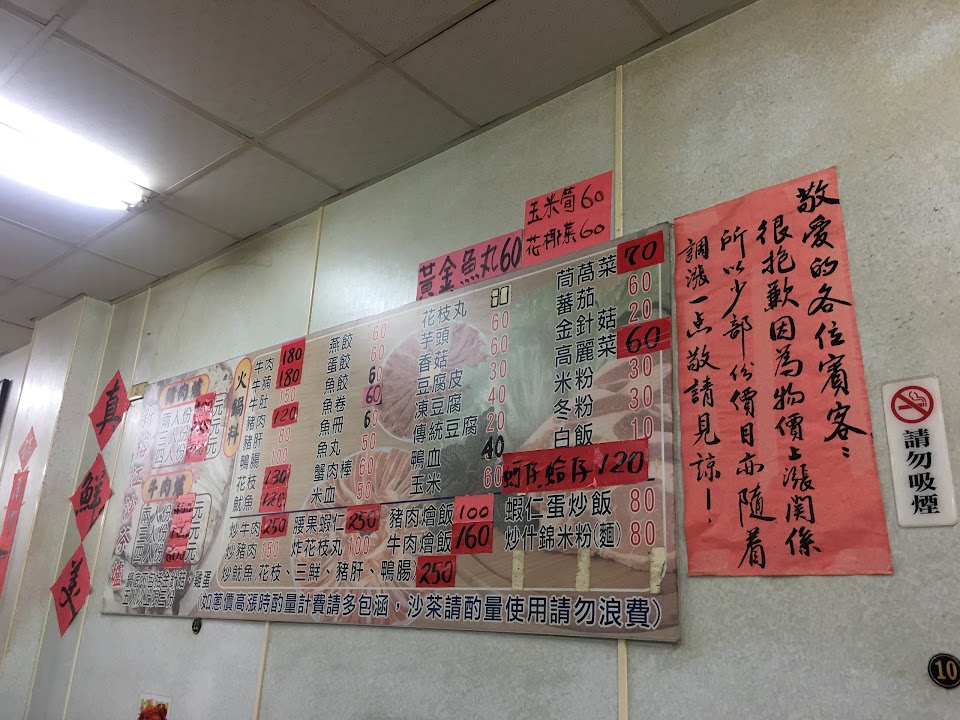 真
鮮
美
黃金魚丸60
玉米筍60
花椰菜60
火鍋料
牛肉 180
牛腩 180
牛肚 150
豬肉 120
豬肝 80
鴨腸 100
花枝 130
魷魚 120
燕餃 60
蛋餃 60
魚餃 60
魚卷 60
魚冊 60
魚丸 50
蟹肉棒 60
米血 50
花枝丸 80
芋頭 60
香菇 60
豆腐皮 60
凍豆腐 40
傳統豆腐 20
鴨血 40
玉米 60
茼萵菜 70
蕃茄 60
金針菇 20
高麗菜 60
米粉 30
冬粉 30
白飯 10
蚵仔.蛤仔 120
炒牛肉 250
炒豬肉 150
腰果蝦仁 250
炸花枝丸 100
豬肉燴飯 100
牛肉燴飯 160
蝦仁蛋炒飯 80
炒什錦米粉(麵) 80
炒魷魚、花枝、三鮮、豬肝、鴨腸 250
(如蔥價高漲時酌量計費請多包涵，沙茶請酌量使用請勿浪費)
敬愛的各位賓客:
很抱歉因為物價上漲関係
所以少部份價目亦隨着
調漲一点敬請見諒!
請勿吸煙
10